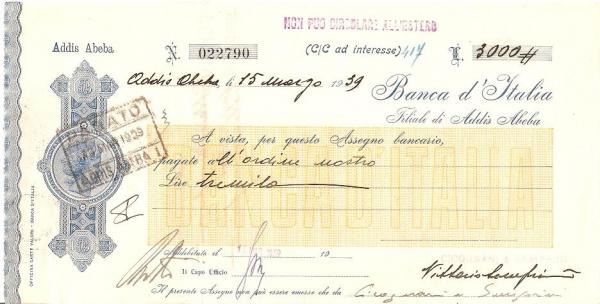 NON PUÒ CIRCOLARE ALL'ESTERO
Addis Abeba
N. 022790
(C/C ad interesse) 417
L. 3000 #
Addis Abeba, li 15 Marzo 1939
Banca d'Italia
Filiale di Addis Abeba
PAGATO
1939
ADDIS ABEBA
A vista, per questo Assegno bancario,
pagate all'ordine nostro
Lire tremila
BANCA D'ITALIA
Addebitato il 19
Il Capo Ufficio
Il presente Assegno non può essere emesso che da
OFFICINA CARTE VALORI - BANCA D'ITALIA